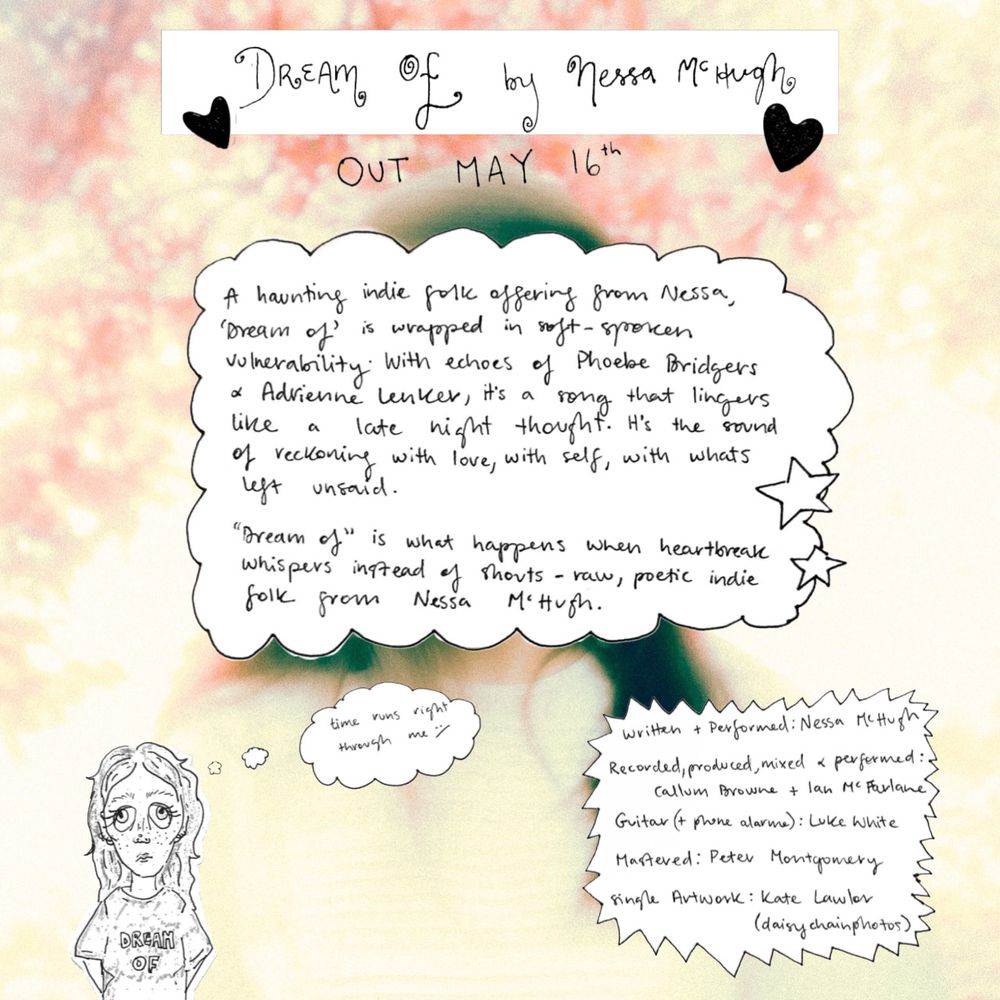 DREAM OF by Nessa McHugh
OUT MAY 16th
A haunting indie folk offering from Nessa,
'Dream of' is wrapped in soft-spoken
vulnerability. With echoes of Phoebe Bridgers
& Adrienne Lenker, it's a song that lingers
like a late night thought. It's the sound
of reckoning with love, with self, with whats
left unsaid.
"Dream of" is what happens when heartbreak
whispers instead of shouts - raw, poetic indie
folk from Nessa McHugh.
time runs right
through me :)
DREAM
OF
written + Performed: Nessa McHugh
Recorded, produced, mixed & performed:
Callum Browne + Ian McFarlane
Guitar (+ phone alarm): Luke White
Mastered: Peter Montgomery
single Artwork: Kate Lawlor
(daisychainphotos)